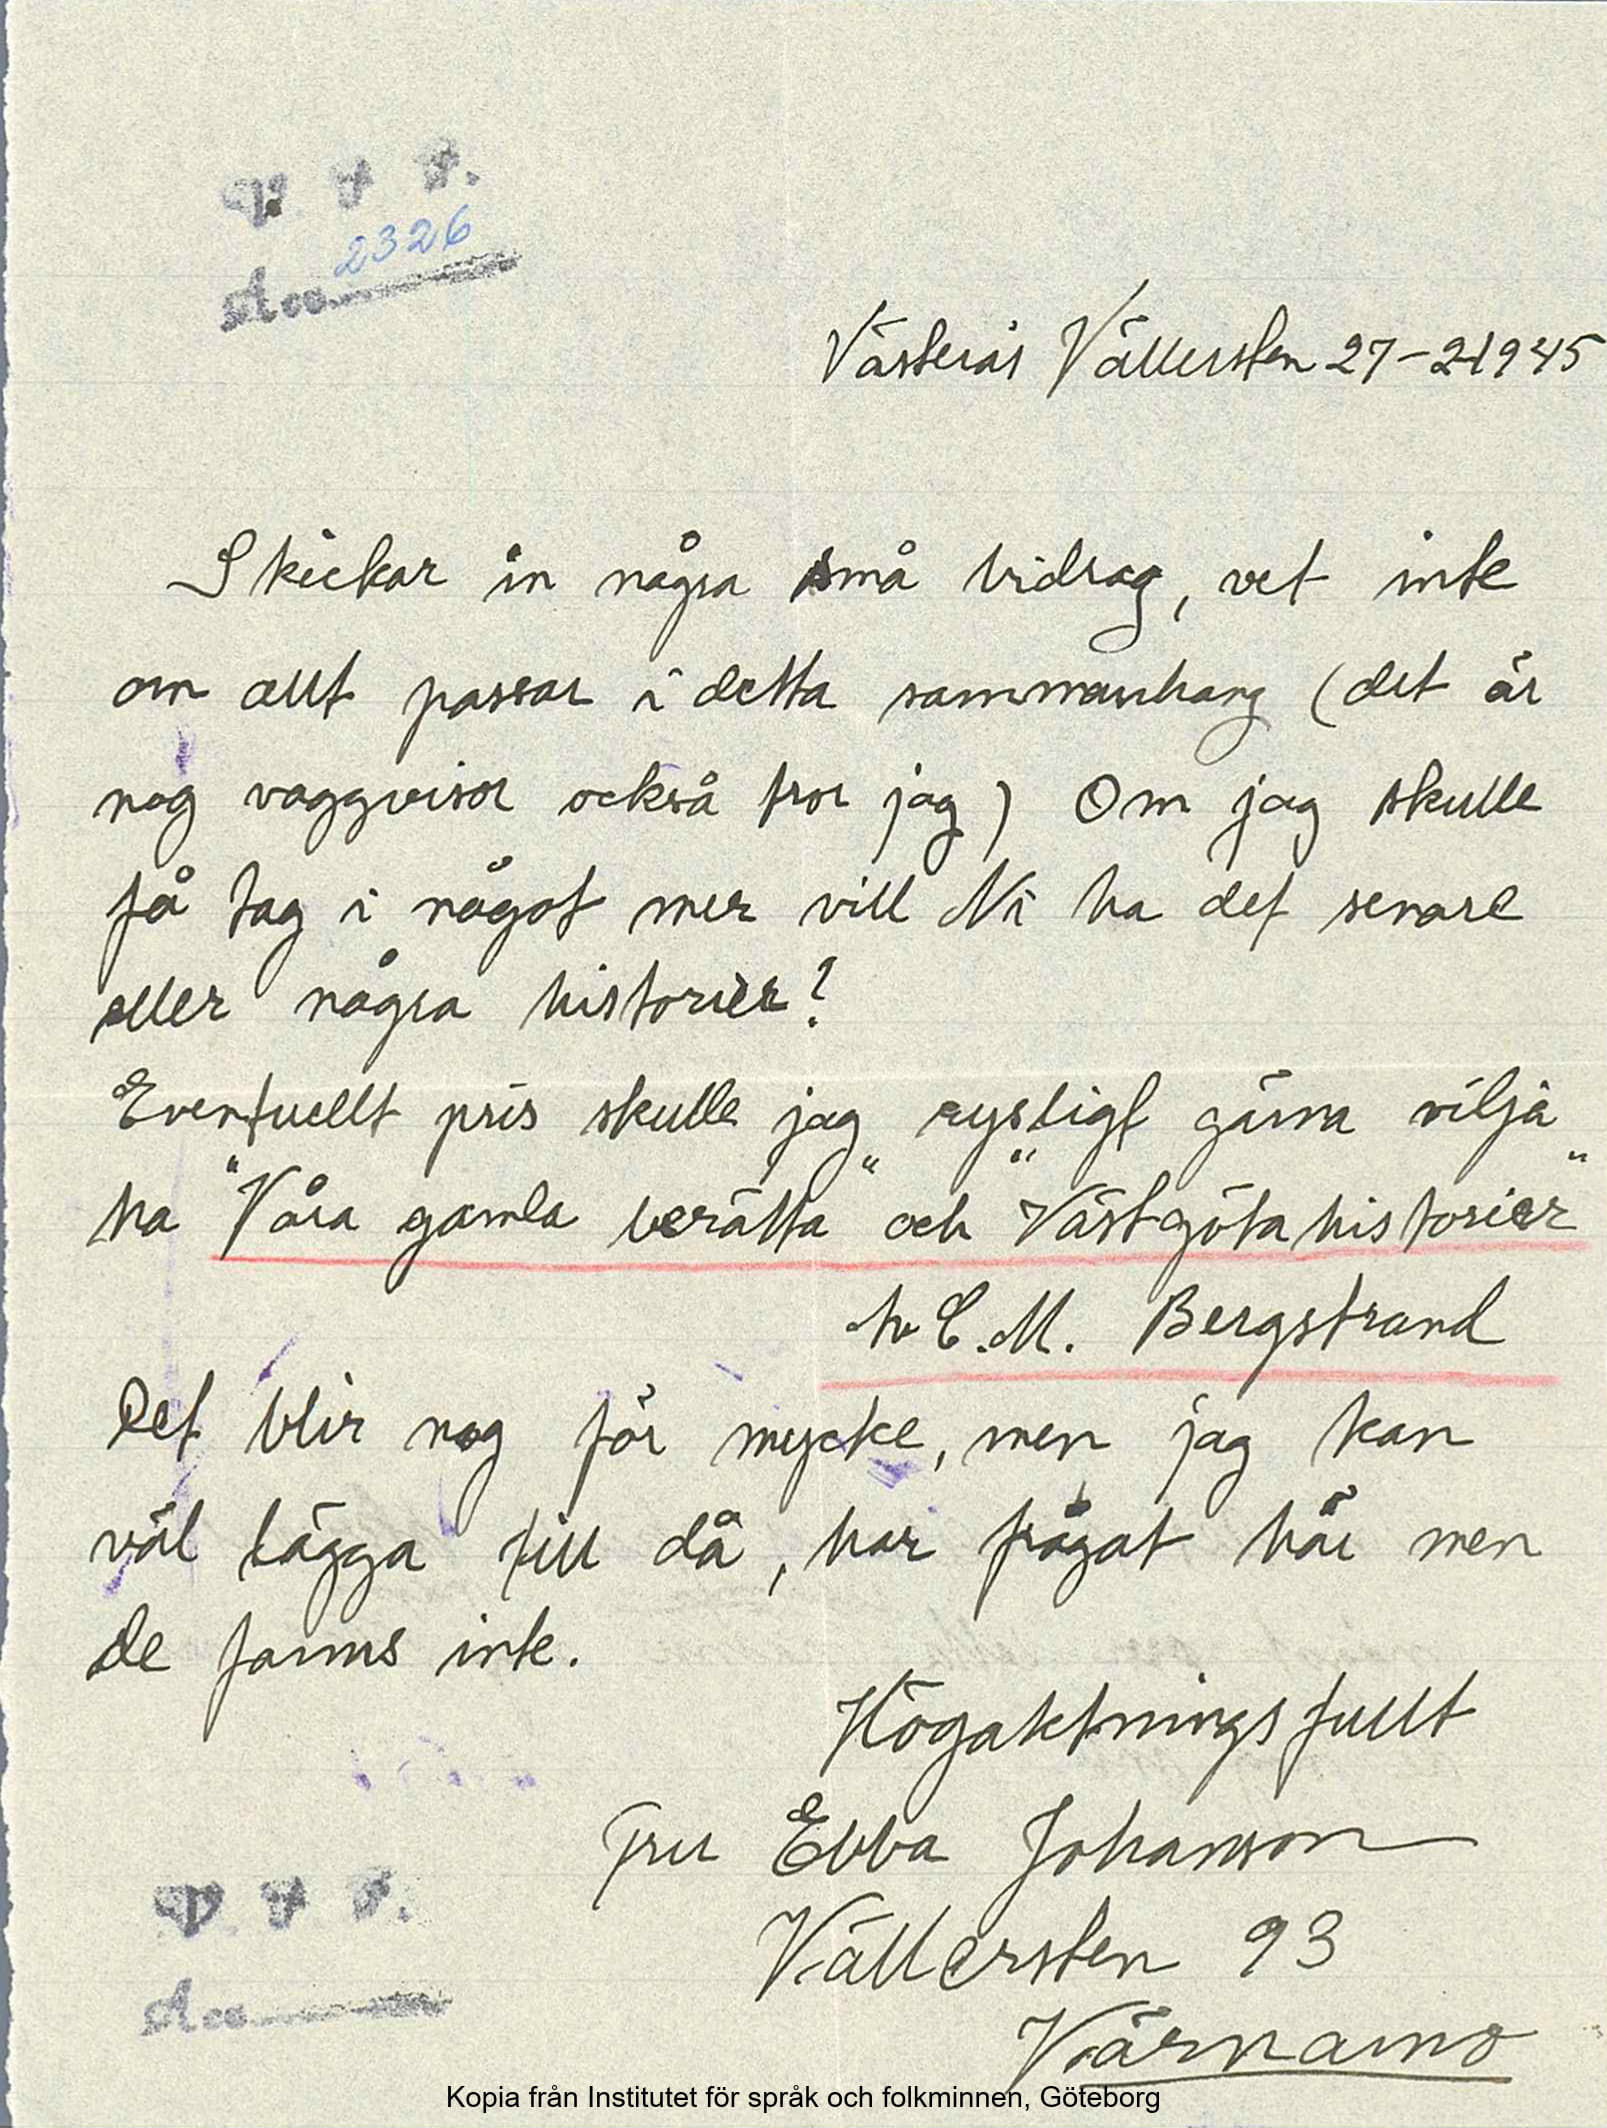 V F F.
2326
Acc
Västerås Vällersten 27-2-1945
Skickar in några små bidrag, vet inte
om allt passar i detta sammanhang (det är
nog vaggvisor också tror jag) Om jag skulle
få tag i något mer vill Ni ha det senare
eller några historier?
Eventuellt pris skulle jag rysligt gärna vilja
ha "Våra gamla berätta" och "Västgötahistorier"
av C.M. Bergstrand
Det blir nog för mycke, men jag kan
väl lägga till då, har frågat här men
de fanns inte.
Högaktningsfullt
Fru Ebba Johansson
Vällersten 93
Värnamo
V F F.
Acc
Kopia från Institutet för språk och folkminnen, Göteborg